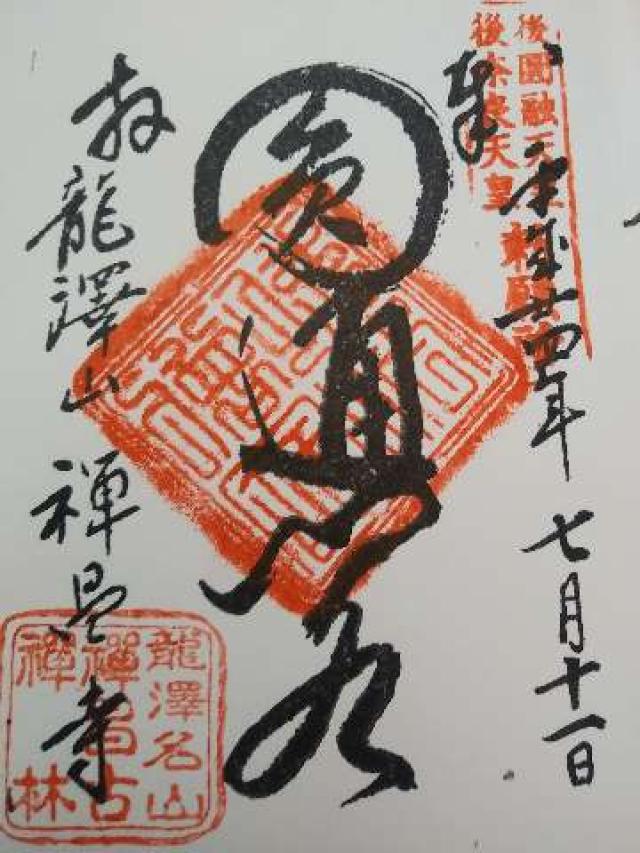 後圓融天皇
後奈良天皇
勅願
奉
平成廿四年七月十一日
圓通閣
於龍澤山禅昌寺
龍澤名山
禪昌古
禪林